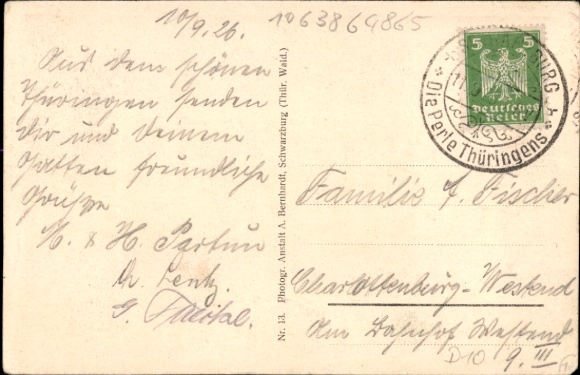 10/9.26.
1063864865
Aus dem schönen
Thüringen senden
Dir und Deinem
Gatten freundliche
Grüsse
M. & H. Partun
Nr. 13. Photogr. Anstalt A. Bernhardt, Schwarzburg (Thür. Wald.)
5 5
Deutsches
Reich
BURG
"Die Perle Thüringens"
Familie A. Fischer
Charlottenburg-Westend
Am Bahnhof Westend
D10 9. III